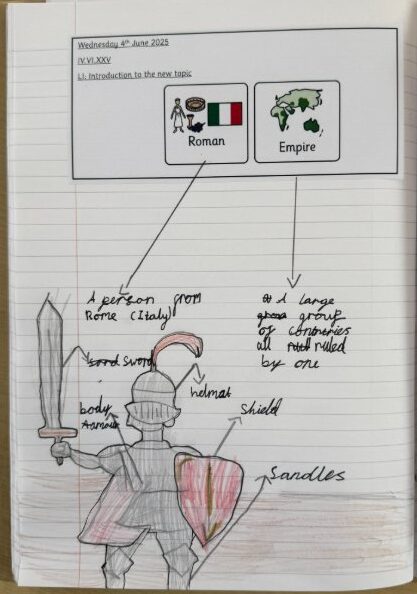 Wednesday 4th June 2025
IV.VI.XXV
LI: Introduction to the new topic
Roman
Empire
A person from
Rome (Italy)
A large
group
of countries
all ruled
by one
Sword
helmat
body
Armour
Shield
Sandles